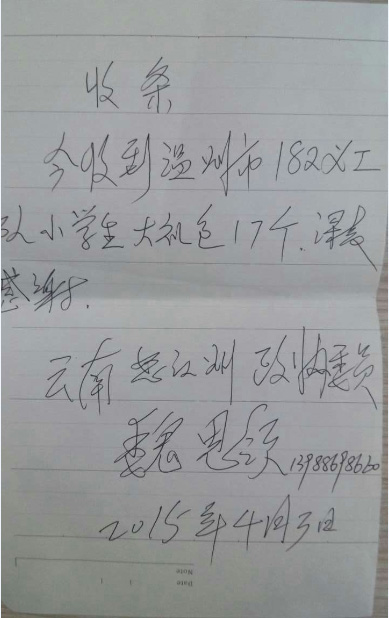 收条
今收到温州市182义工
队小学生大礼包17个.深表
感谢.
云南怒江州政协委员
魏思颖 13988698660
2015年4月3日
Note
Date